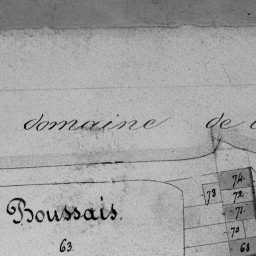 domaine de
74
73
72
Boussais.
71
70
63
68